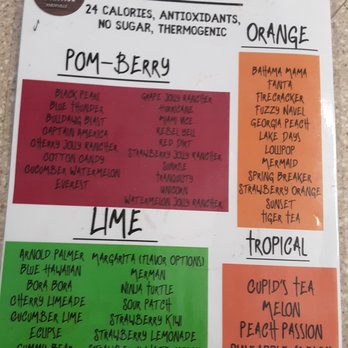 24 CALORIES, ANTIOXIDANTS,
NO SUGAR, THERMOGENIC
POM-BERRY
BLACK PEARL
BLUE THUNDER
BULLDAWG BLAST
CAPTAIN AMERICA
CHERRY JOLLY RANCHER
COTTON CANDY
CUCUMBER WATERMELON
EVEREST
GRAPE JOLLY RANCHER
HURRICANE
MIAMI VICE
REBEL BELL
RED DIRT
STRAWBERRY JOLLY RANCHER
SUNRISE
TRANQUILITY
UNICORN
WATERMELON JOLLY RANCHER
ORANGE
BAHAMA MAMA
FANTA
FIRECRACKER
FUZZY NAVEL
GEORGIA PEACH
LAKE DAYS
LOLLIPOP
MERMAID
SPRING BREAKER
STRAWBERRY ORANGE
SUNSET
TIGER TEA
LIME
ARNOLD PALMER
BLUE HAWAIIAN
BORA BORA
CHERRY LIMEADE
CUCUMBER LIME
ECLIPSE
GUMMY BEAR
MARGARITA (FLAVOR OPTIONS)
MERMAN
NINJA TURTLE
SOUR PATCH
STRAWBERRY KIWI
STRAWBERRY LEMONADE
TROPICAL
CUPID'S TEA
MELON
PEACH PASSION